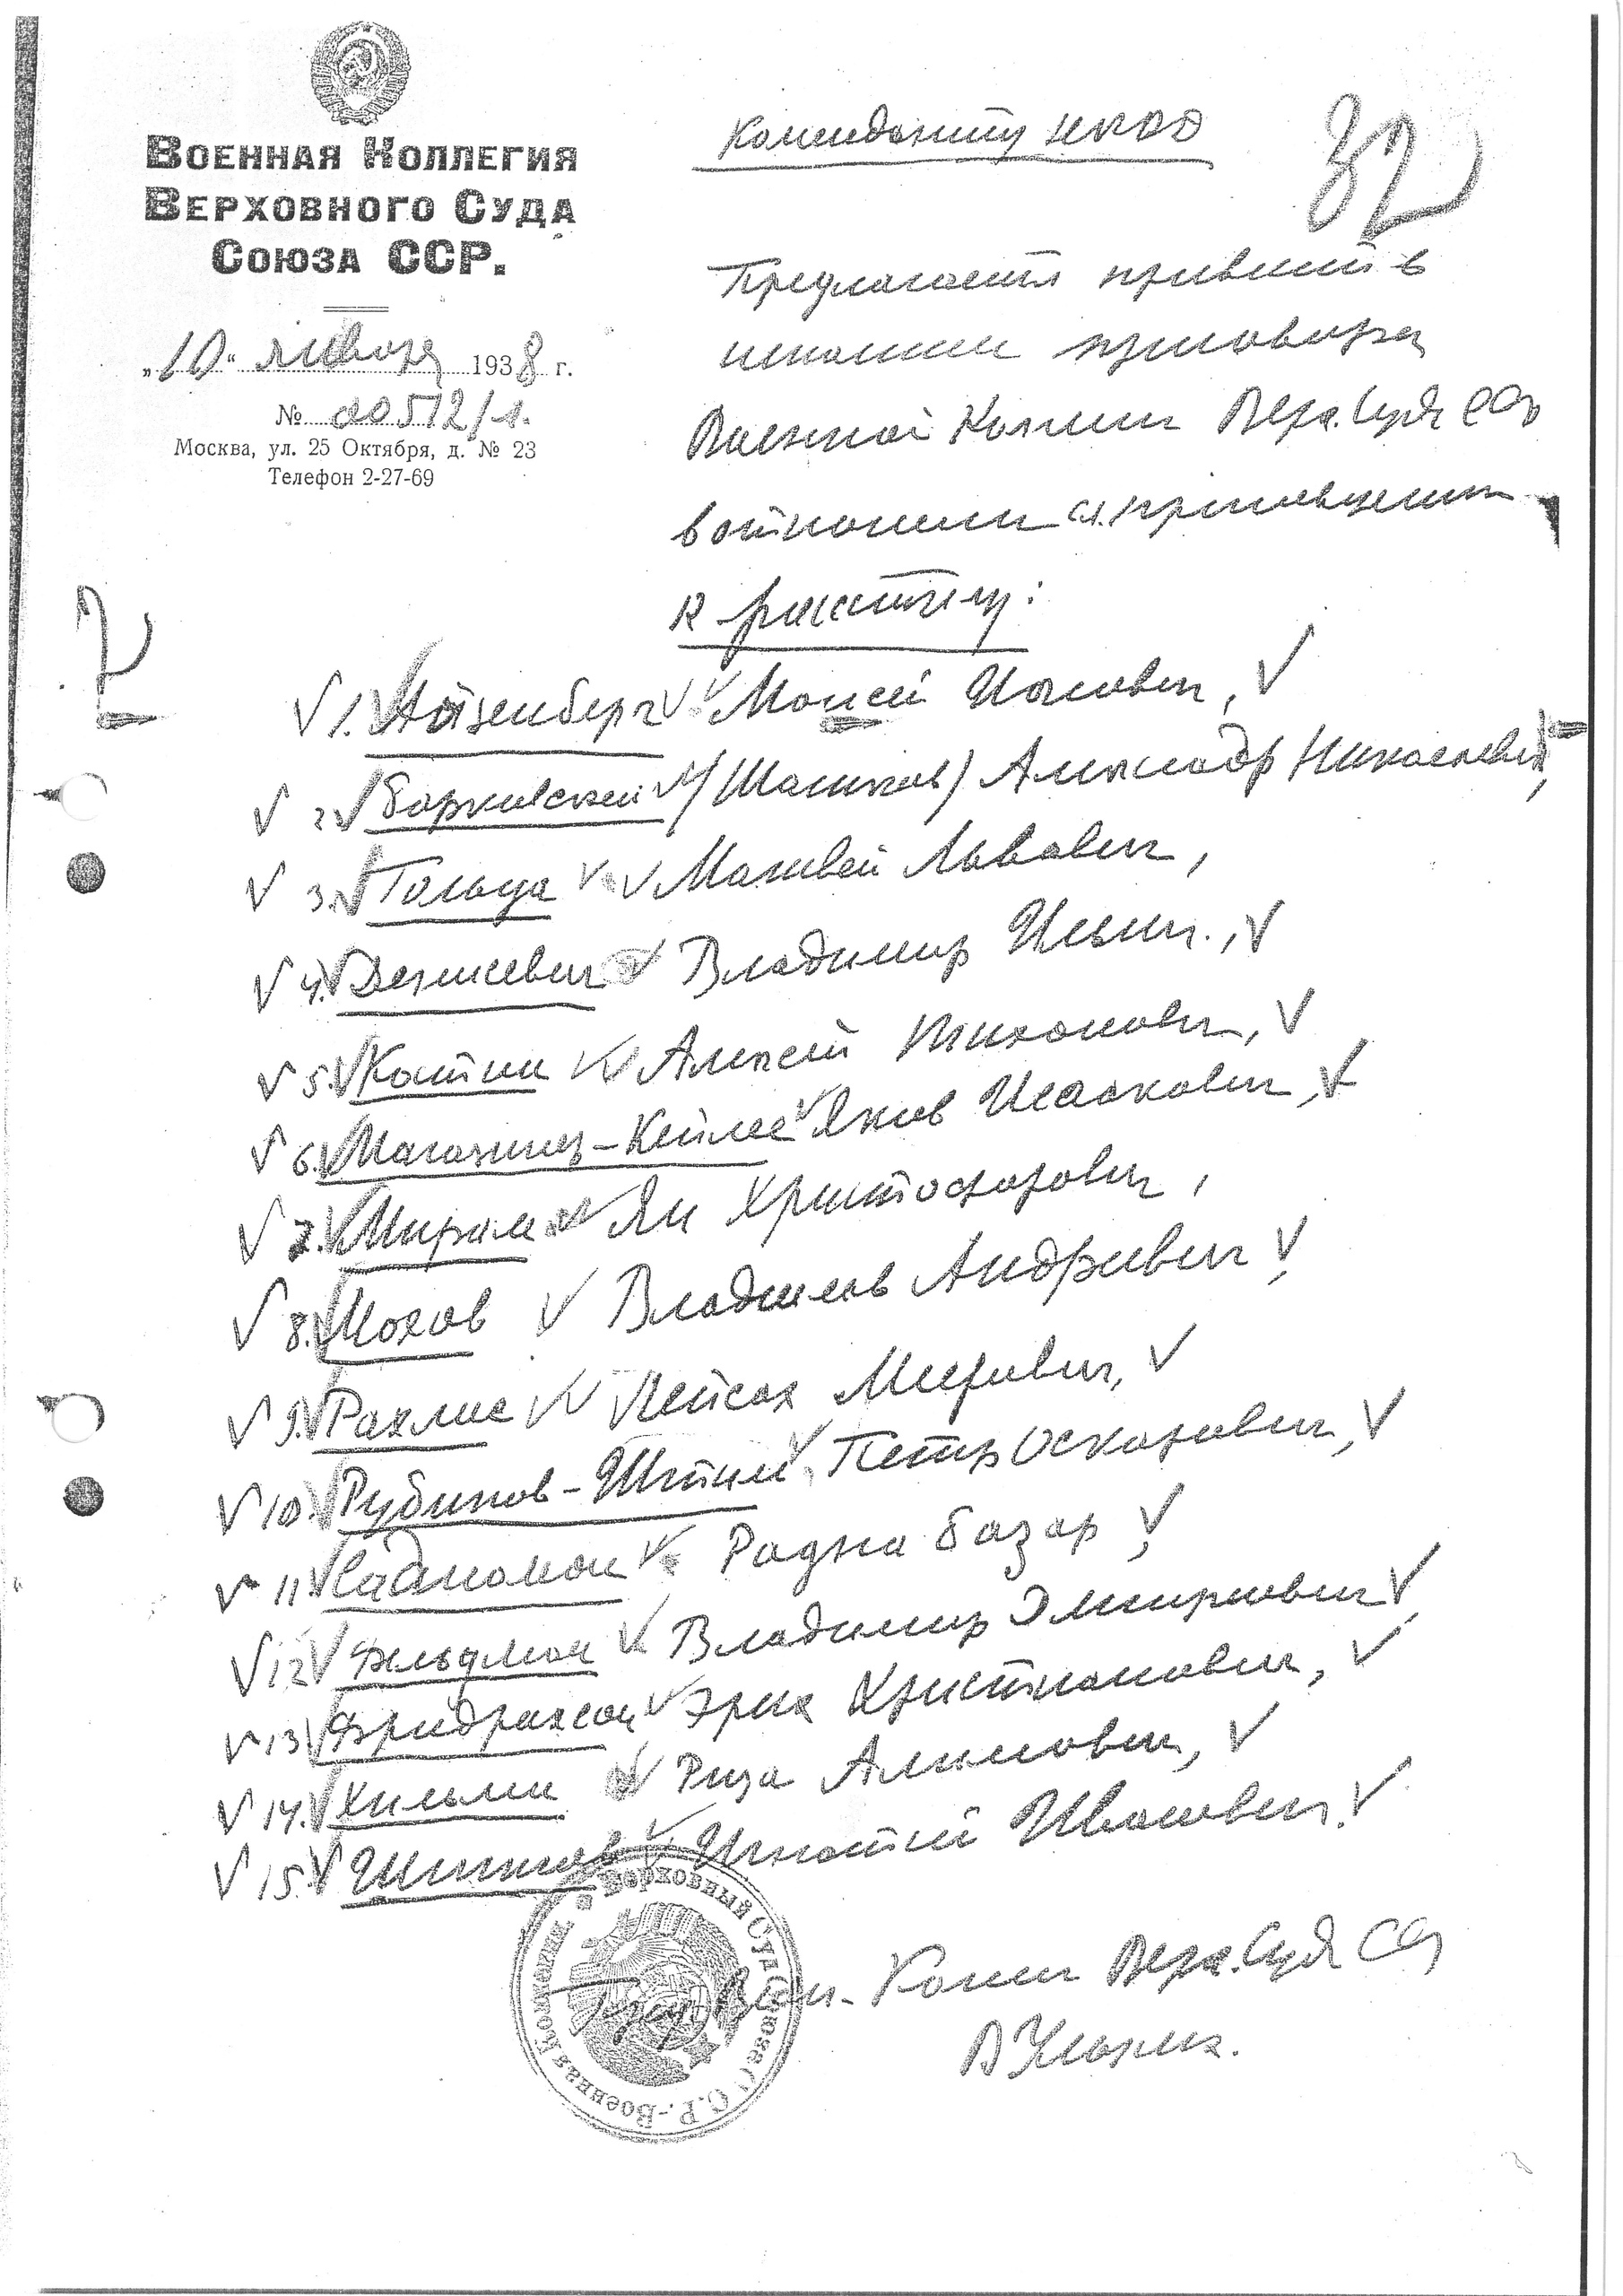 Военная Коллегия
Верховного Суда
Союза ССР.
„10“ января 1938 г.
№ 00512/1.
Москва, ул. 25 Октября, д. № 23
Телефон 2-27-69
Коменданту НКВД
32
Предлагается привести в
исполнение приговора
Военной Коллегии Верх. Суда СССР
в отношении сл. приговоренных
к расстрелу:
2
1. Айзенберг Моисей Исакович,
2. Борковский /Машков/ Александр Николаевич,
3. Гольца Матвей Львович,
4. Владимир Ильич.,
5. Костин Алексей Тихонович,
6. Магазинер-Кейлес Яков Исаакович,
7. Мирам Ян Христофорович,
8. Мохов Владимов Андреевич,
9. Рахлис Пейсах Меерович,
10. Рубинов-Штейн Петр Оскарович,
11. Радна Базар,
12. Фельдман Владимир Эмирович,
13. Фридрихсон Эрих Христианович,
14. Хильми Риза Алимович,
15. Игнатий Иванович.
Пред. Воен. Колл Верх. Суда СССР
В Ульрих.
Верховный Суд Союза С.С.Р.-Военная Коллегия